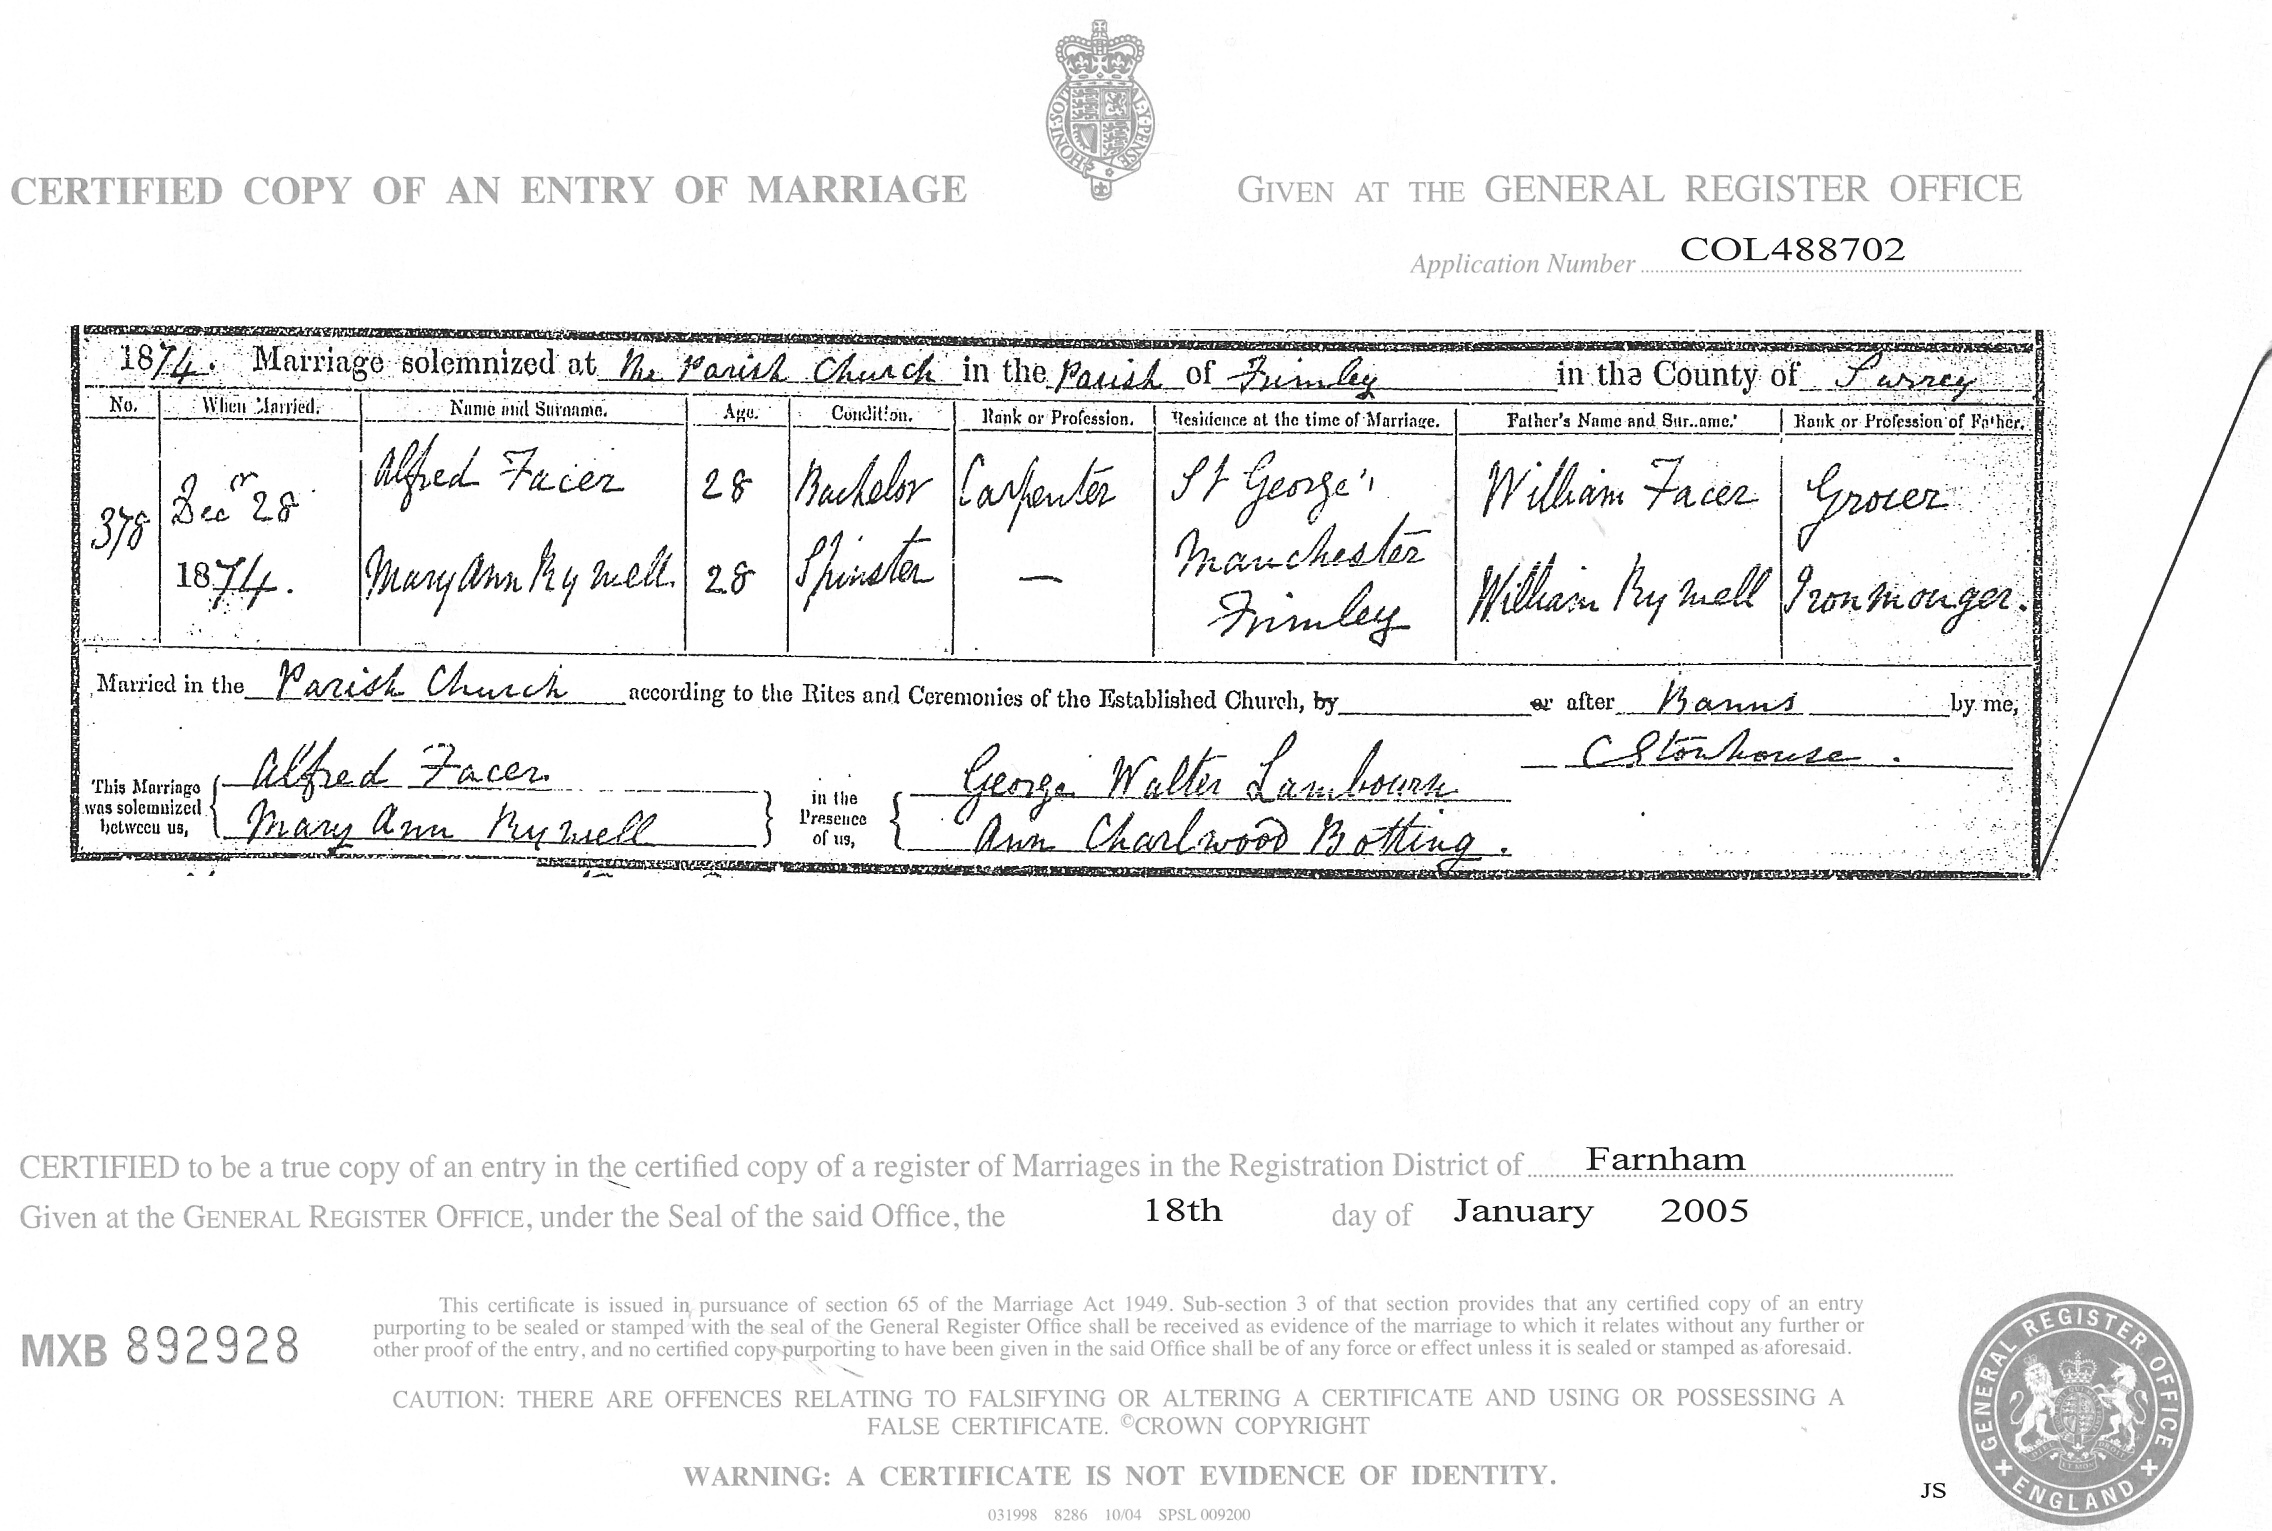 HONI·SOIT QUI MAL·Y·PENSE
CERTIFIED COPY OF AN ENTRY OF MARRIAGE
GIVEN AT THE GENERAL REGISTER OFFICE
Application Number COL488702
1874. Marriage solemnized at The Parish Church in the Parish of Frimley in the County of Surrey
No. When Married. Name and Surname. Age. Condition. Rank or Profession. Residence at the time of Marriage. Father's Name and Surname. Rank or Profession of Father.
378 Decr 28 Alfred Facer 28 Bachelor Carpenter St George's Manchester William Facer Grocer
1874. Mary Ann Rymell 28 Spinster — Frimley William Rymell Ironmonger.
Married in the Parish Church according to the Rites and Ceremonies of the Established Church, by or after Banns by me,
C Stonhouse.
This Marriage was solemnized between us, Alfred Facer Mary Ann Rymell in the Presence of us, George Walter Lambourn Ann Charlwood Botting.
CERTIFIED to be a true copy of an entry in the certified copy of a register of Marriages in the Registration District of Farnham
Given at the GENERAL REGISTER OFFICE, under the Seal of the said Office, the 18th day of January 2005
MXB 892928
This certificate is issued in pursuance of section 65 of the Marriage Act 1949. Sub-section 3 of that section provides that any certified copy of an entry
purporting to be sealed or stamped with the seal of the General Register Office shall be received as evidence of the marriage to which it relates without any further or
other proof of the entry, and no certified copy purporting to have been given in the said Office shall be of any force or effect unless it is sealed or stamped as aforesaid.
CAUTION: THERE ARE OFFENCES RELATING TO FALSIFYING OR ALTERING A CERTIFICATE AND USING OR POSSESSING A
FALSE CERTIFICATE. ©CROWN COPYRIGHT
WARNING: A CERTIFICATE IS NOT EVIDENCE OF IDENTITY.
031998 8286 10/04 SPSL 009200
JS
GENERAL REGISTER OFFICE
ENGLAND